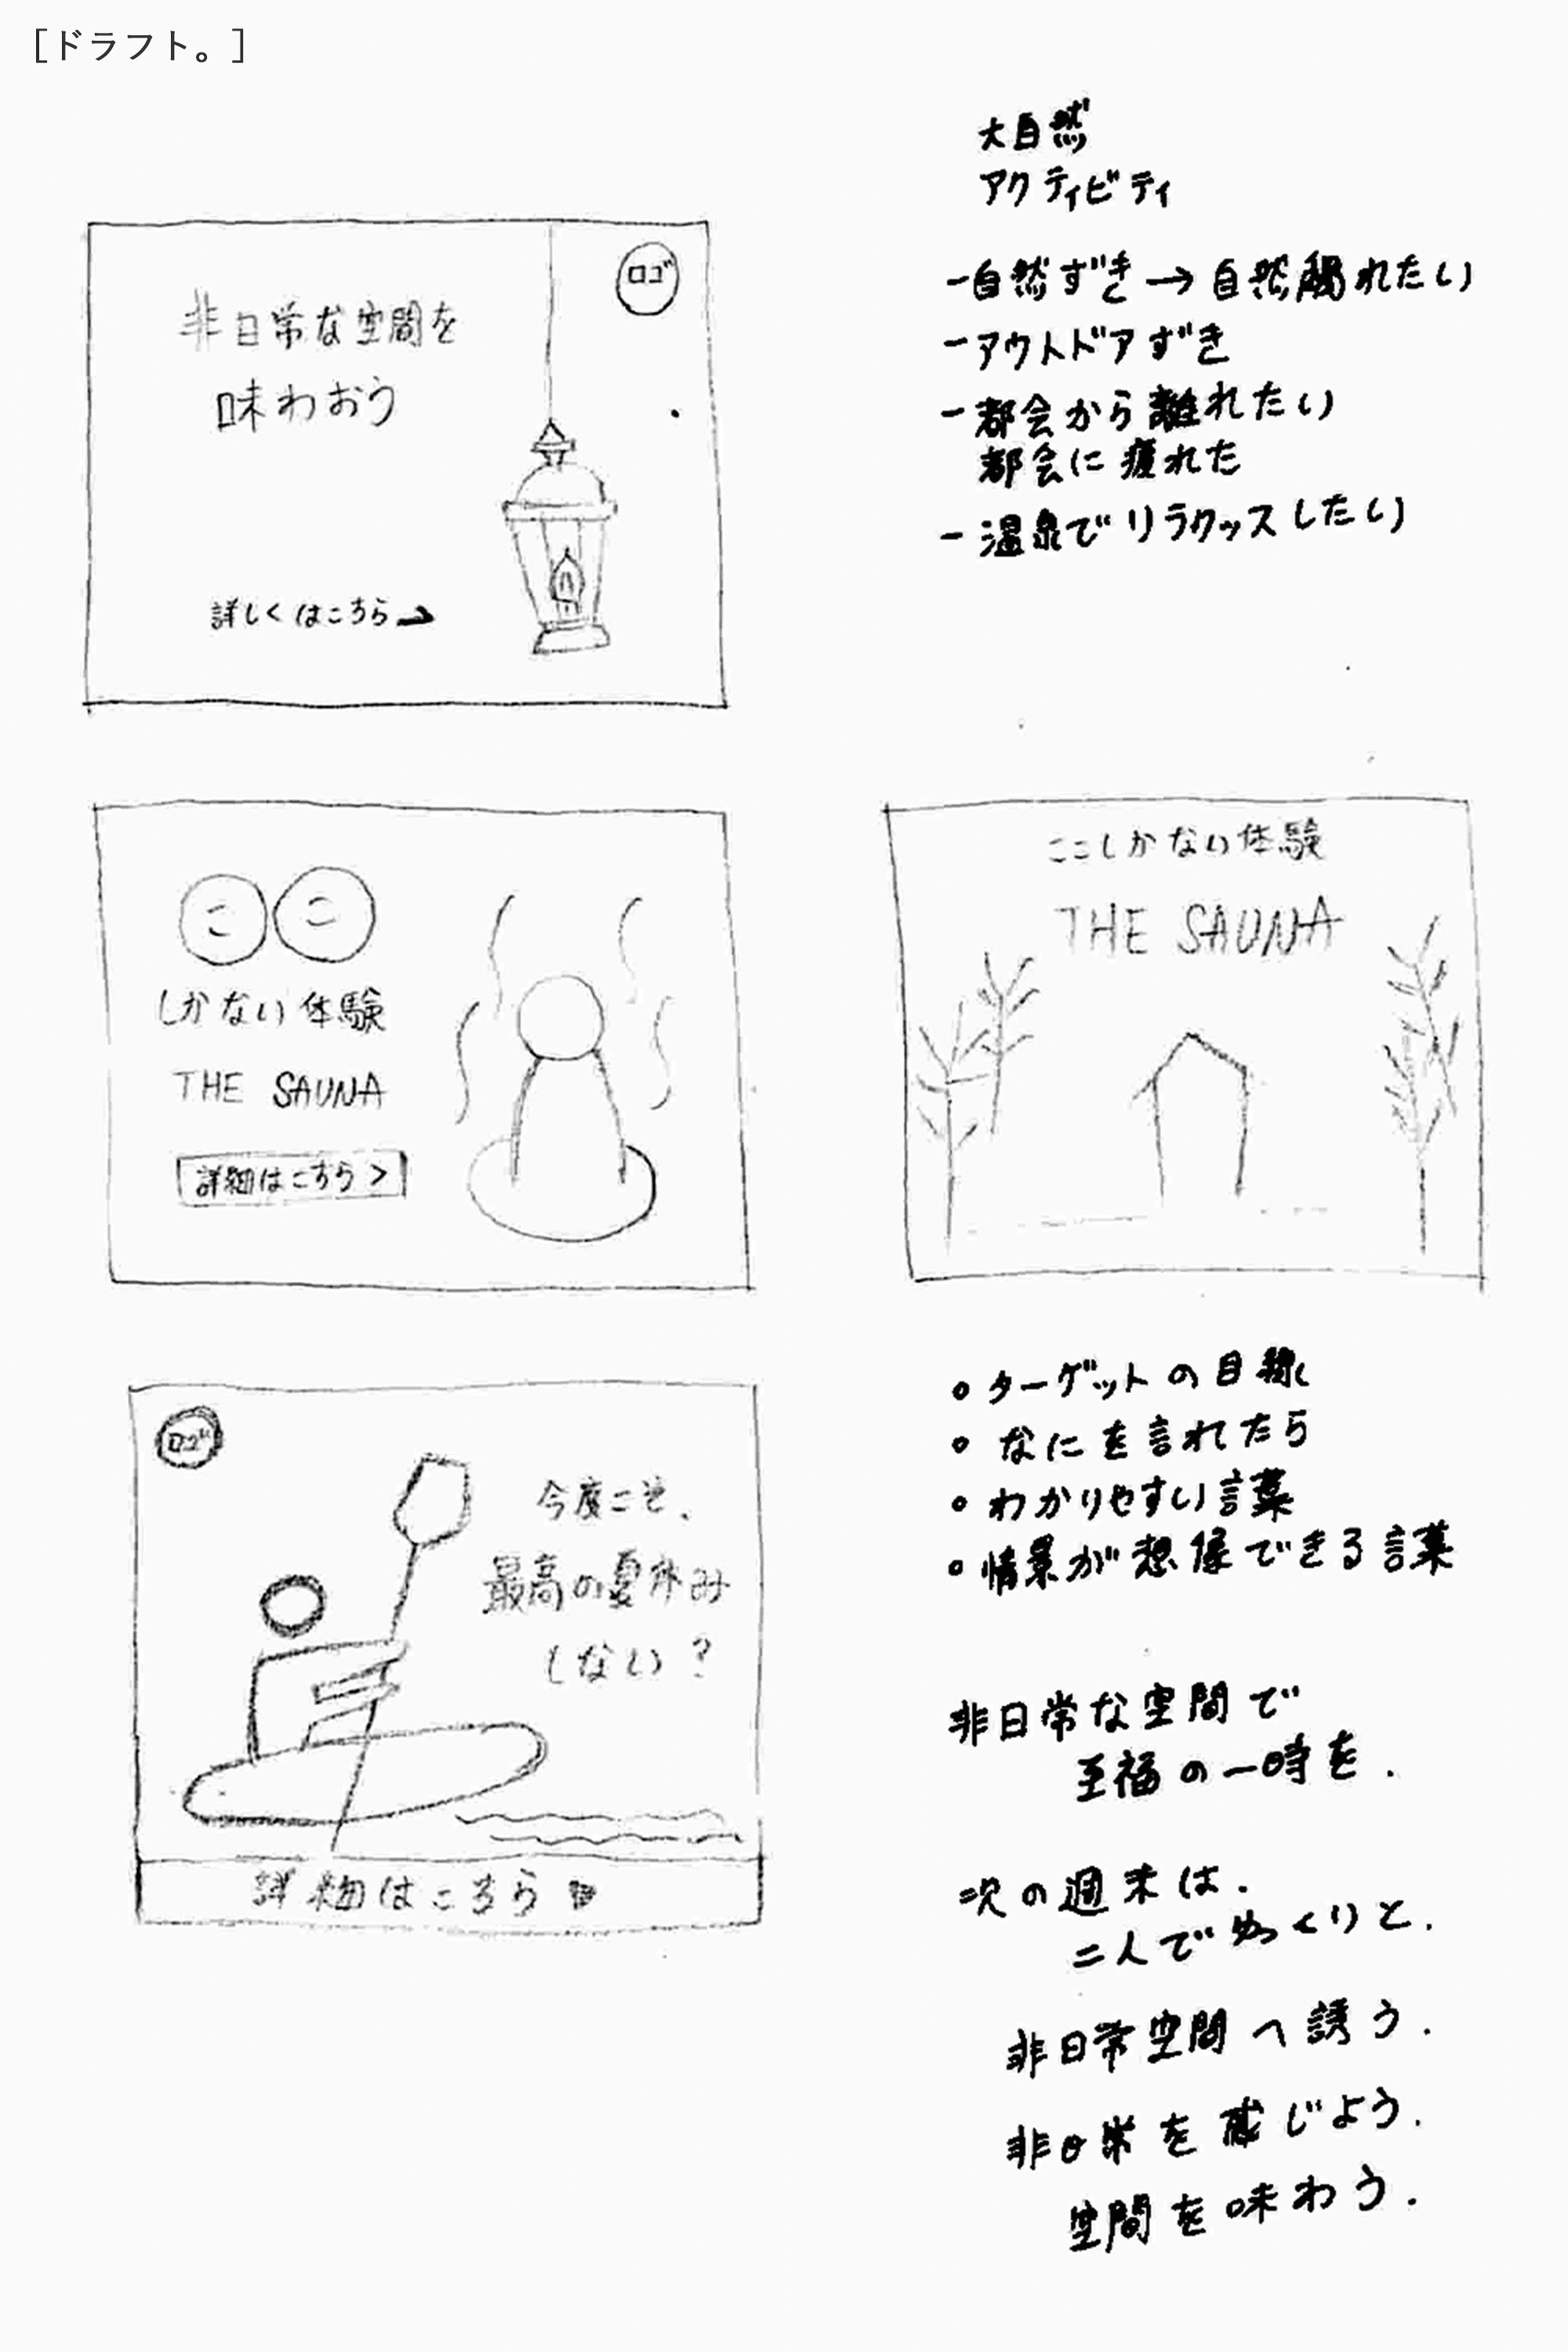 [ドラフト。]
大自然
アクティビティ
-自然ずき→自然触れたい
-アウトドアずき
-都会から離れたい
都会に疲れた
-温泉でリラックスしたい
ロゴ
非日常な空間を
味わおう
詳しくはこちら→
ここ
しかない体験
THE SAUNA
詳細はこちら >
ここしかない体験
THE SAUNA
ロゴ
今度こそ、
最高の夏休み
しない?
詳細はこちら
。ターゲットの目線
。なにを言れたら
。わかりやすい言葉
。情景が想像できる言葉
非日常な空間で
至福の一時を.
次の週末は.
二人でゆっくりと.
非日常空間へ誘う.
非日常を感じよう.
空間を味わう.